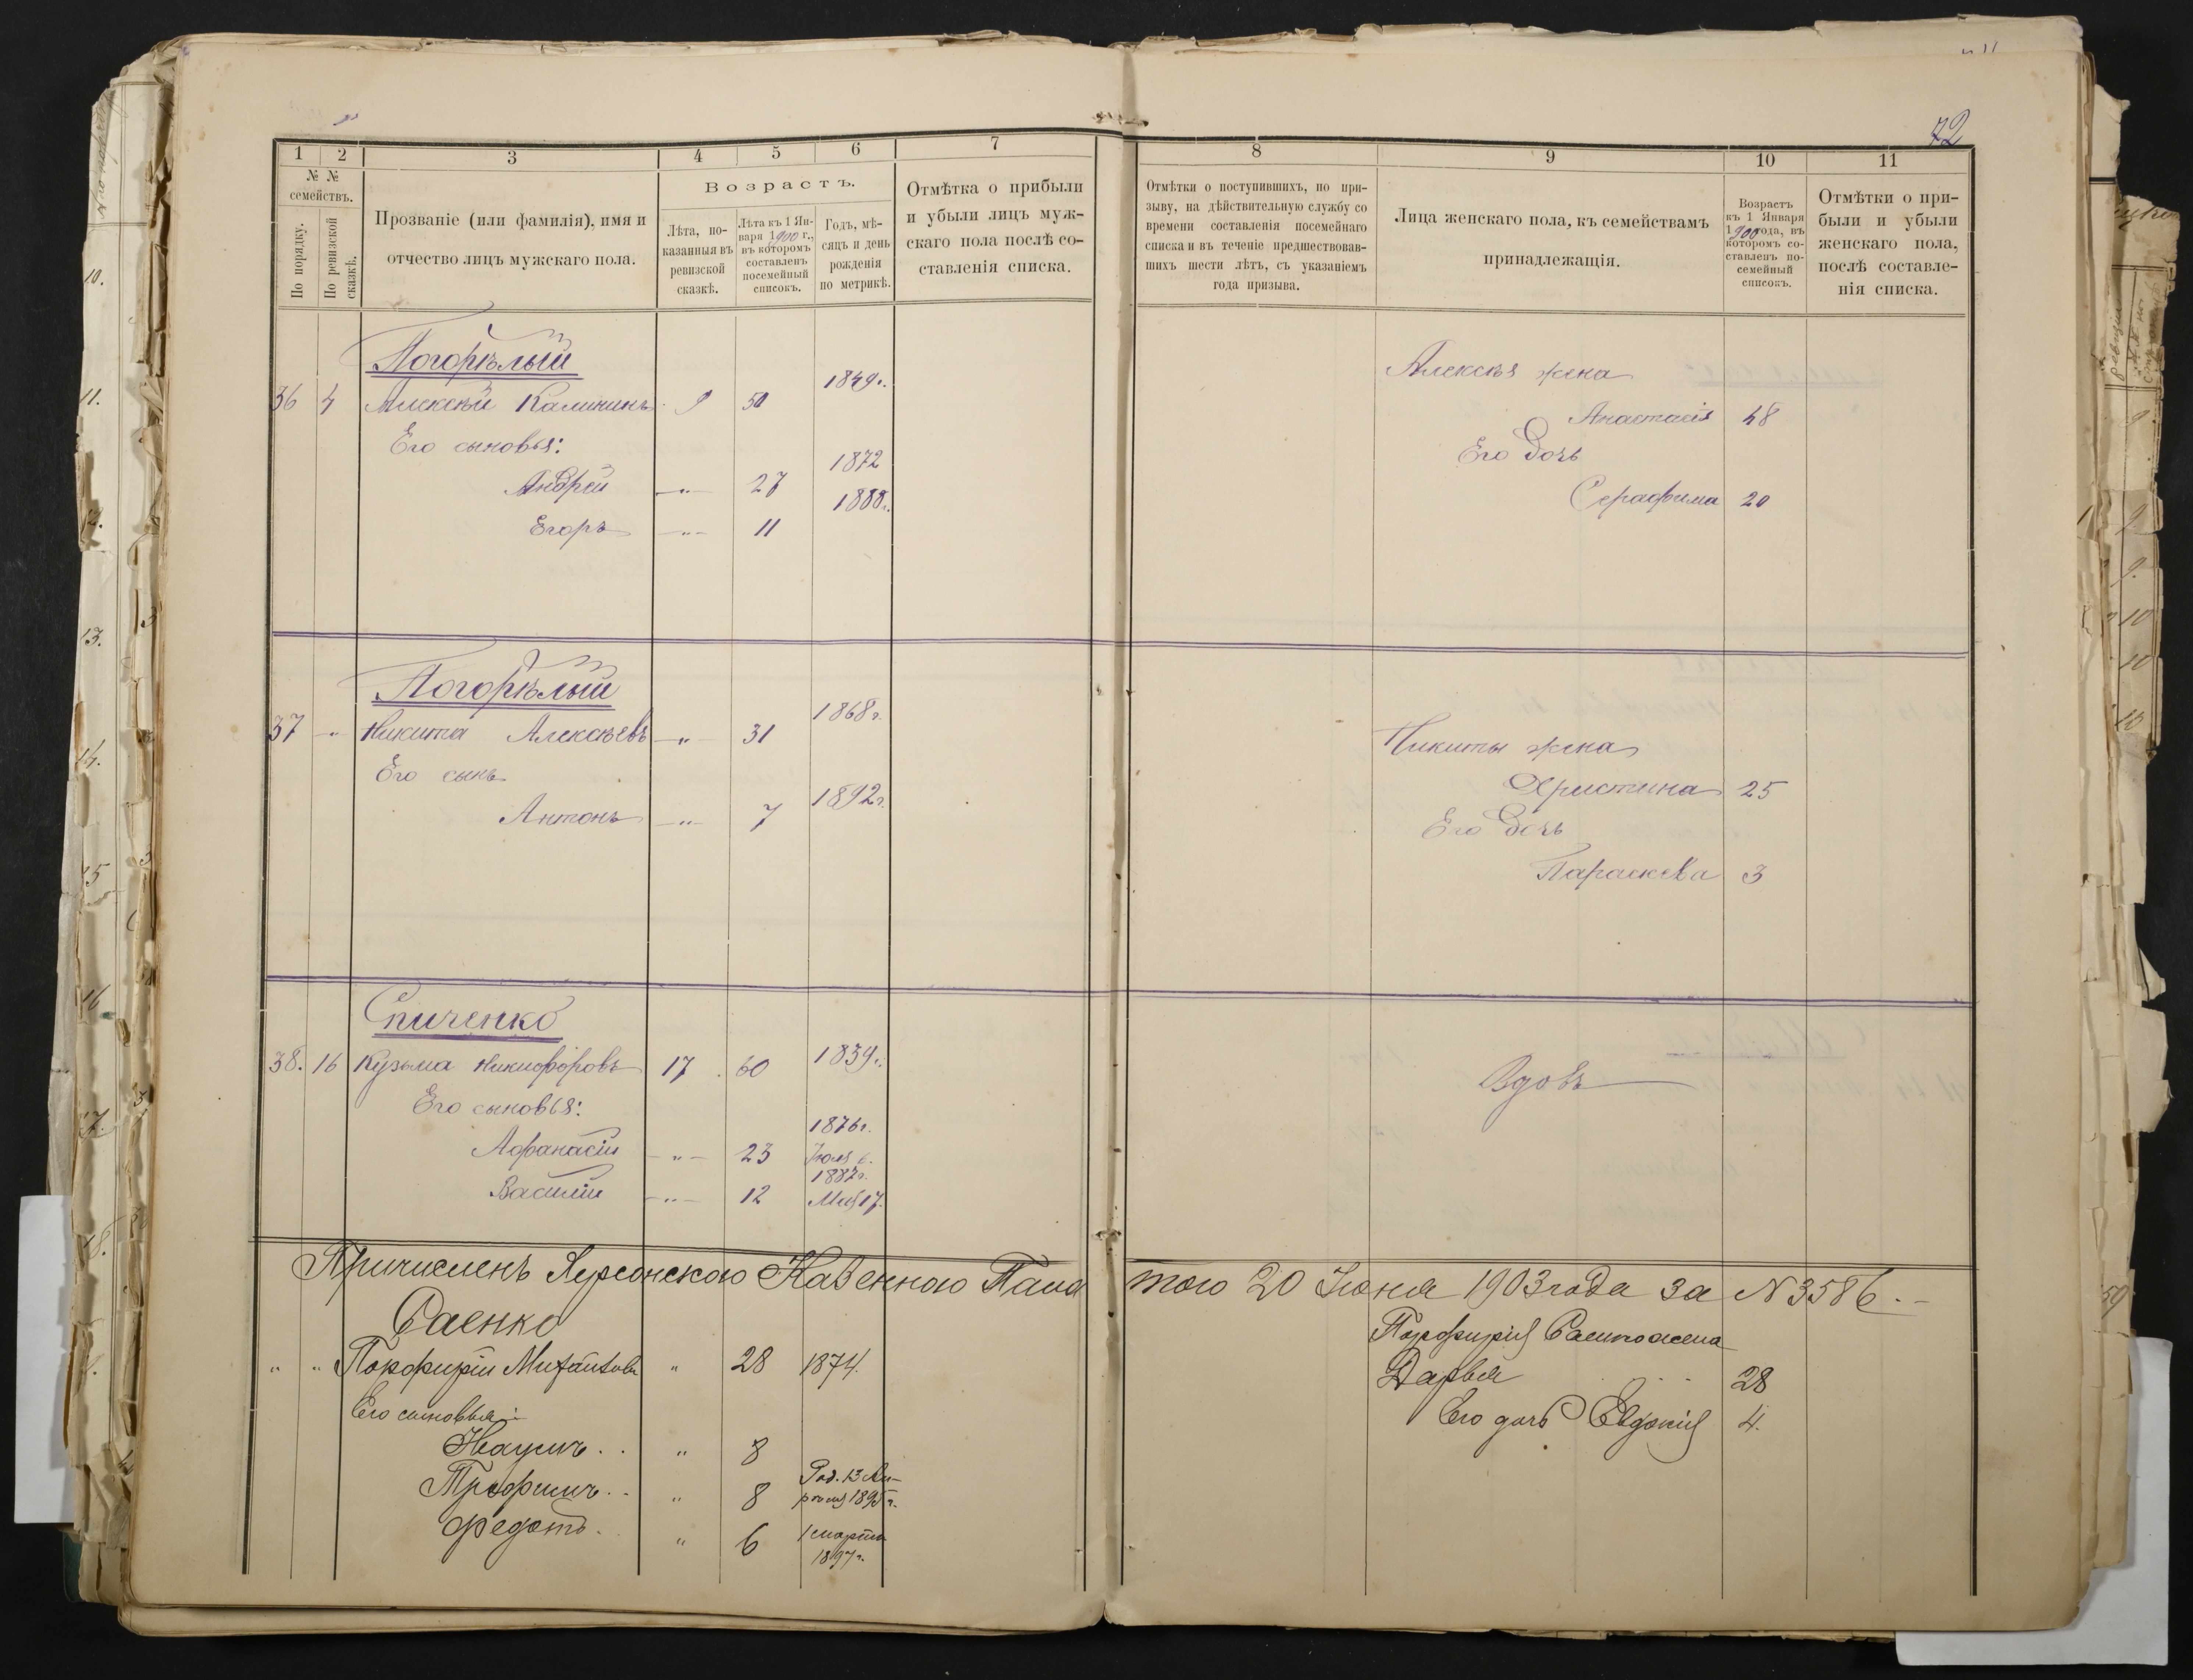 72
1 2 3 4 5 6 7
№ № семействъ.
По порядку.
По ревизской сказкѣ.
Прозваніе (или фамилія), имя и
отчество лицъ мужскаго пола.
Возрастъ.
Лѣта, по-
казанныя въ
ревизской
сказкѣ.
Лѣта къ 1 Ян-
варя 1900 г.,
въ которомъ
составленъ
посемейный
списокъ.
Годъ, мѣ-
сяцъ и день
рожденія
по метрикѣ.
Отмѣтка о прибыли
и убыли лицъ муж-
скаго пола послѣ со-
ставленія списка.
8 9 10 11
Отмѣтки о поступившихъ, по при-
зыву, на дѣйствительную службу со
времени составленія посемейнаго
списка и въ теченіе предшествовав-
шихъ шести лѣтъ, съ указаніемъ
года призыва.
Лица женскаго пола, къ семействамъ
принадлежащія.
Возрастъ
къ 1 Января
1900 года, въ
которомъ со-
ставленъ по-
семейный
списокъ.
Отмѣтки о при-
были и убыли
женскаго пола,
послѣ составле-
нія списка.
Погорѣлый
36 4 Алексѣй Калининъ 9 50 1849 г.
Его сыновья:
Андрей —"— 27 1872
Егоръ —"— 11 1888 г.
Алексѣя жена
Анастасія 48
Его дочь
Серафима 20
Погорѣлый
37 " Никита Алексѣевъ —"— 31 1868 г.
Его сынъ
Антонъ —"— 7 1892 г.
Никиты жена
Христина 25
Его дочь
Параскева 3
Спиченко
38. 16 Кузьма Никифоровъ 17 60 1839 г.
Его сыновья:
Афанасій —"— 23 1876 г.
Іюля 6.
Василій —"— 12 1887 г.
Мая 17.
Вдовъ
Причисленъ Херсонскою Казенною Пала
тою 20 Іюня 1903 года за N 3586.-
Саенко
" " Порфирій Михайловъ " 28 1874.
Его сыновья:
Наумъ.. " 8
Трофимъ.. " 8 Род. 13 Ап-
рѣля 1895 г.
Федотъ. " 6 1 марта
1897 г.
Порфирія Саенко жена
Дарья 28
Его дочь Евдокія 4.